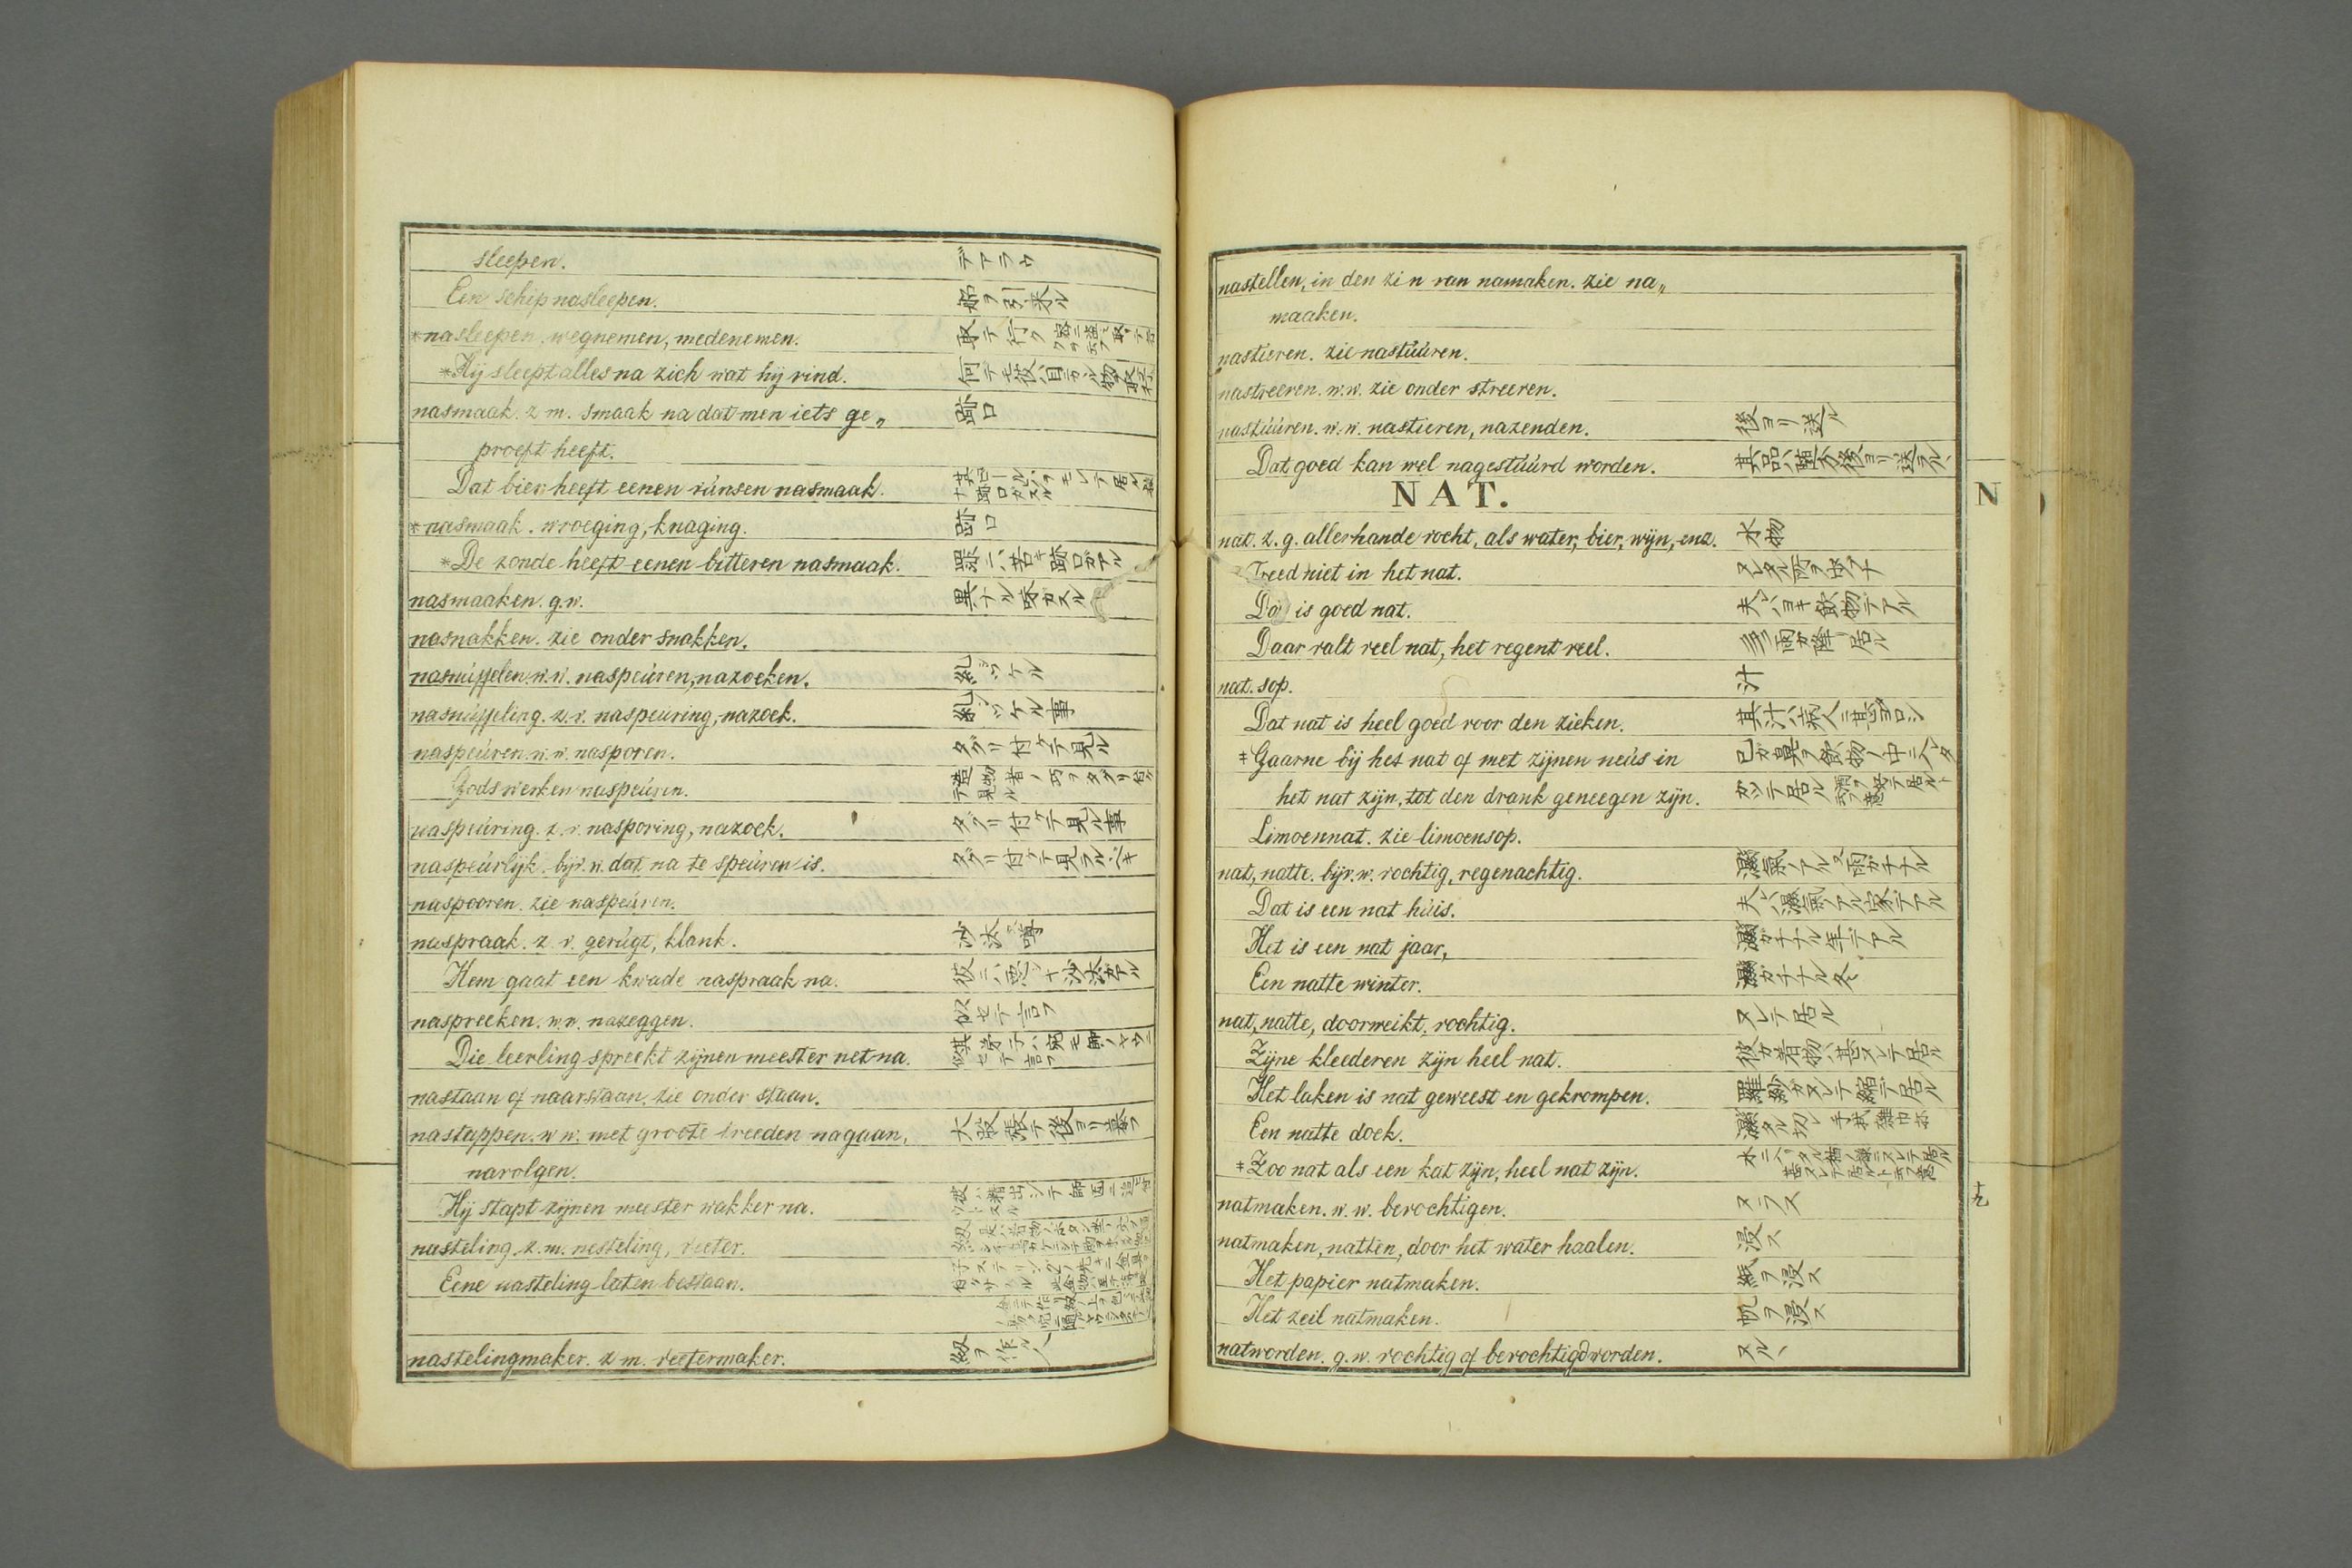 sleepen.
デアラウ
Een schip nasleepen.
船ヲ引来ル
*nasleepen, wegnemen, medenemen.
取テ行ク
*Hij sleept alles na zich wat hij vind.
nasmaak. z m. smaak na dat men iets ge„
跡口
proeft heeft.
Dat bier heeft eenen rúnsen nasmaak.
*nasmaak. wroeging, knaging.
跡口
*De zonde heeft eenen bitteren nasmaak.
罪ニハ苦キ跡口ガアル
nasmaaken. g.w.
異ナル味ガスル
nasnakken. zie onder snakken.
nasnúffelen. w.w. naspeúren, nazoeken.
糺シツケル
nasnúffeling. z.v. naspeúring, nazoek.
糺シツケル事
naspeúren. w.w. nasporen.
タグリ付ケテ見ル
Gods werken naspeúren.
naspeúring. z.v. nasporing, nazoek.
タグリ付ケテ見ル事
naspeúrlijk. bijv. w. dat na te speúren is.
naspooren. zie naspeúren.
naspraak. z.v. gerúgt, klank.
沙汰 噂
Hem gaat een kwade naspraak na.
彼ニハ悪シキ沙汰ガアル
naspreeken. w.w. nazeggen.
似セテ言フ
Die leerling spreekt zijnen meester net na.
nastaan of naarstaan. zie onder staan.
nastappen. w w. met groote treeden nagaan,
navolgen.
Hij stapt zijnen meester wakker na.
nasteling. z.m. nesteling, veeter.
Eene nasteling laten beslaan.
nastelingmaker. z m. veetermaker.
紐ヲ作ル人
nastellen, in den zin van namaken. zie na„
maaken.
nastieren. zie nastúúren.
nastreeven. w.w. zie onder streeven.
nastúúren. w.w. nastieren, nazenden.
後ヨリ送ル
Dat goed kan wel nagestúúrd worden.
NAT.
N
nat. z.g. allerhande vocht, als water, bier, wijn, enz.
水物
Treed niet in het nat.
is goed nat.
夫ハヨキ飲物デアル
Daar valt veel nat, het regent veel.
多雨ガ降リ居ル
nat. sop.
汁
Dat nat is heel goed voor den zieken.
其汁ハ病人ニ甚ヨロシ
*Gaarne bij het nat of met zijnen neús in
己ガ鼻ヲ飲物ノ中ニ入レタ
het nat zijn, tot den drank geneegen zijn.
Limoennat. zie limoensop.
nat, natte. bijv. w. vochtig, regenachtig.
Dat is een nat húis.
夫ハ濕氣ノアル家デアル
Het is een nat jaar,
濕ガチナル年デアル
Een natte winter.
濕ガチナル冬
nat, natte, doorweikt, vochtig.
ヌレテ居ル
Zijne kleederen zijn heel nat.
彼ガ着物ハ甚ヌレテ居ル
Het laken is nat geweest en gekrompen.
羅紗ガヌレテ縮テ居ル
Een natte doek.
*Zoo nat als een kat zijn, heel nat zijn.
natmaken. w.w. bevochtigen.
ヌラス
natmaken, natten, door het water haalen.
浸ス
Het papier natmaken.
紙ヲ浸ス
Het zeil natmaken.
帆ヲ浸ス
natworden. g.w. vochtig of bevochtigd worden.
ヌルヽ